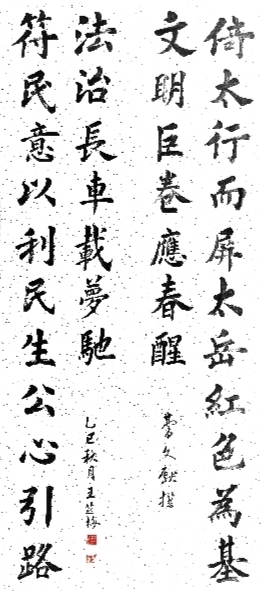 倚太行而屏太岳紅色為基
文明巨卷應春醒
文獻撰
符民意以利民生公心引路
法治長車載夢馳
乙巳秋月王梅